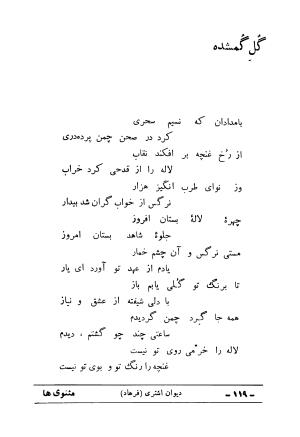 گُلِ گُمشده
بامدادان که نسیم سحری
کرد در صحن چمن پرده‌دری
از رخ غنچه بر افکند نقاب
لاله را از قدحی کرد خراب
وز نوای طرب انگیز هزار
نرگس از خواب گران شد بیدار
چهرهٔ لالهٔ بستان افروز
جلوهٔ شاهد بستان امروز
مستی نرگس و آن چشم خمار
یادم از عهد تو آورد ای یار
تا برنگ تو گلی یابم باز
با دلی شیفته از عشق و نیاز
همه جا گرد چمن گردیدم
ساعتی چند چو گشتم ، دیدم
لاله را خرّمی روی تو نیست
غنچه را رنگ تو و بوی تو نیست
مثنوی‌ها
دیوان اشتری (فرهاد)
- ۱۱۹ -